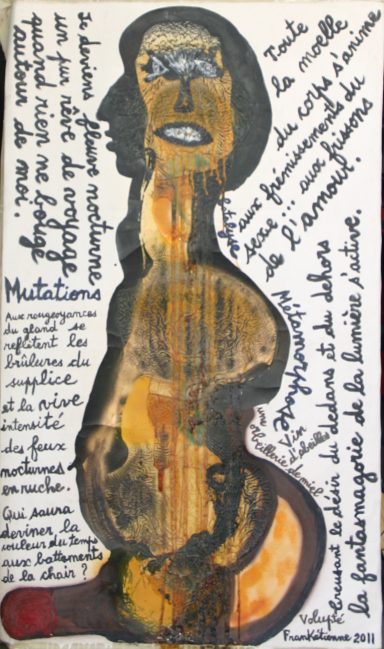 Je deviens fleuve nocturne
un pur rêve de voyage
quand rien ne bouge
autour de moi.
Toute
la moelle
du corps s'anime
aux frémissements du
sexe... aux frissons
de l'amour.
Mutations
Aux rougeoyances
du gland se
reflètent les
brûlures du
supplice
et la vive
intensité
des feux
nocturnes
en ruche.
Qui saura
deviner la
couleur du temps
aux battements
de la chair ?
Métamorphose
Vin
d'abeilles
de miel
Creusant le désir du dedans et du dehors
la fantasmagorie de la lumière s'active.
Volupté
Frankétienne 2011